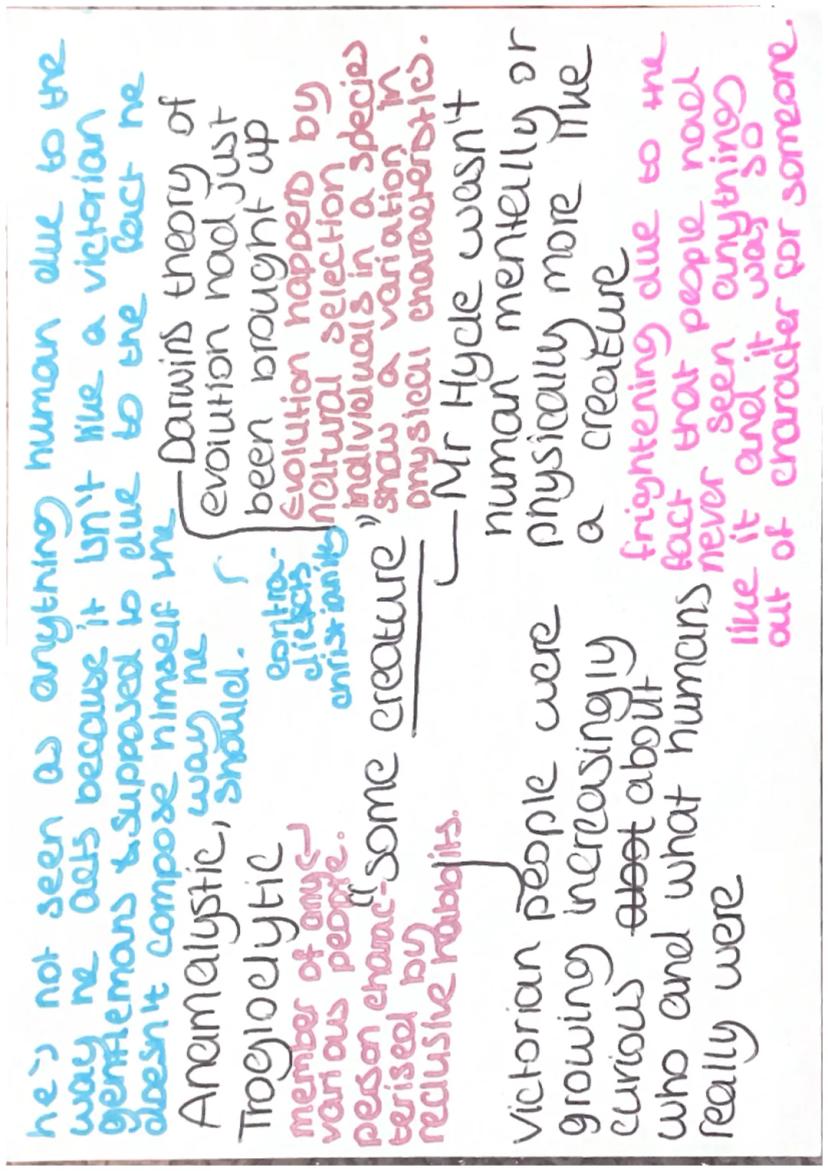 he's not seen as anything human due to the
way he acts because it isn't like a victorian
gentlemans supposed to due to the fact he
doesn't compose himself the
way he
should.
Darwins theory of
evolution had just
been brought up
Evolution happens by
natural selection by
individuals in a species
show a variation in
physical characteristics.
contra-
dicts
christianity
Anamalystic,
Trogloclytic
member of any
various people.
person charac-
terised by
reclusive habbits.
"some creature"
Mr Hyde wasn't
human mentally or
physically more like
a creature
frightening due to the
fact that people had
never seen anything
like it and it was so
out of character for someone.
Victorian people were
growing increasingly
curious about
who and what humans
really were